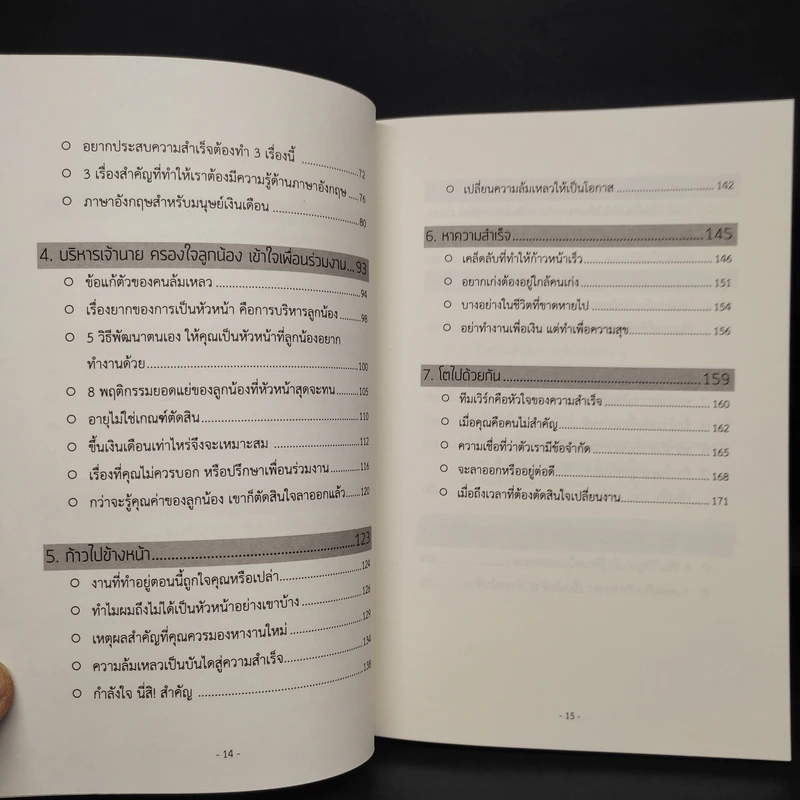 อยากประสบความสำเร็จต้องทำ 3 เรื่องนี้ ..................72
3 เรื่องสำคัญที่ทำให้เราต้องมีความรู้ด้านภาษาอังกฤษ .....76
ภาษาอังกฤษสำหรับมนุษย์เงินเดือน ........................80
4. บริหารเจ้านาย ครองใจลูกน้อง เข้าใจเพื่อนร่วมงาน...93
ข้อแก้ตัวของคนล้มเหลว ........................................94
เรื่องยากของการเป็นหัวหน้า คือการบริหารลูกน้อง ........98
5 วิธีพัฒนาตนเอง ให้คุณเป็นหัวหน้าที่ลูกน้องอยาก
ทำงานด้วย ........................................................100
8 พฤติกรรมยอดแย่ของลูกน้องที่หัวหน้าสุดจะทน .........105
อายุไม่ใช่เกณฑ์ตัดสิน ..........................................110
ขึ้นเงินเดือนเท่าไหร่จึงจะเหมาะสม .........................112
เรื่องที่คุณไม่ควรบอก หรือปรึกษาเพื่อนร่วมงาน..........116
กว่าจะรู้คุณค่าของลูกน้อง เขาก็ตัดสินใจลาออกแล้ว......120
5. ก้าวไปข้างหน้า..................................................123
งานที่ทำอยู่ตอนนี้ถูกใจคุณหรือเปล่า........................124
ทำไมผมถึงไม่ได้เป็นหัวหน้าอย่างเขาบ้าง .................126
เหตุผลสำคัญที่คุณควรมองหางานใหม่ ......................129
ความล้มเหลวเป็นบันไดสู่ความสำเร็จ.......................134
กำลังใจ นี่สิ! สำคัญ .............................................138
- 14 -
เปลี่ยนความล้มเหลวให้เป็นโอกาส ........................... 142
6. หาความสำเร็จ..................................................145
เคล็ดลับที่ทำให้ก้าวหน้าเร็ว .................................. 146
อยากเก่งต้องอยู่ใกล้คนเก่ง ................................... 151
บางอย่างในชีวิตที่ขาดหายไป ................................. 154
อย่าทำงานเพื่อเงิน แต่ทำเพื่อความสุข...................... 156
7. โตไปด้วยกัน.....................................................159
ทีมเวิร์กคือหัวใจของความสำเร็จ ............................ 160
เมื่อคุณคือคนไม่สำคัญ.......................................... 162
ความเชื่อที่ว่าตัวเรามีข้อจำกัด ............................... 165
จะลาออกหรืออยู่ต่อดี........................................... 168
เมื่อถึงเวลาที่ต้องตัดสินใจเปลี่ยนงาน....................... 171
- 15 -